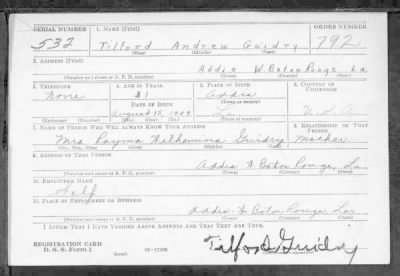 SERIAL NUMBER 1. NAME (Print) ORDER NUMBER
532 Tilford Andrew Guidry 792
(First) (Middle) (Last)
2. ADDRESS (Print)
Addis W. Baton Rouge La.
(Number and street or R. F. D. number) (Town) (County) (State)
3. TELEPHONE 4. AGE IN YEARS 5. PLACE OF BIRTH 6. COUNTRY OF CITIZENSHIP
None 31 Addis
DATE OF BIRTH (Town or county)
August 15, 1909 La. U.S.A.
(Exchange) (Number) (Mo.) (Day) (Yr.) (State or country)
7. NAME OF PERSON WHO WILL ALWAYS KNOW YOUR ADDRESS 8. RELATIONSHIP OF THAT PERSON
Mrs Wilhemina Guidry Mother
(Mr., Mrs., Miss) (First) (Middle) (Last)
9. ADDRESS OF THAT PERSON
Addis W. Baton Rouge, La
(Number and street or R. F. D. number) (Town) (County) (State)
10. EMPLOYER'S NAME
Self
11. PLACE OF EMPLOYMENT OR BUSINESS
Addis W. Baton Rouge, La
(Number and street or R. F. D. number) (Town) (County) (State)
I AFFIRM THAT I HAVE VERIFIED ABOVE ANSWERS AND THAT THEY ARE TRUE.
REGISTRATION CARD
D. S. S. Form 1 (over) 16—17105 Tilford Guidry